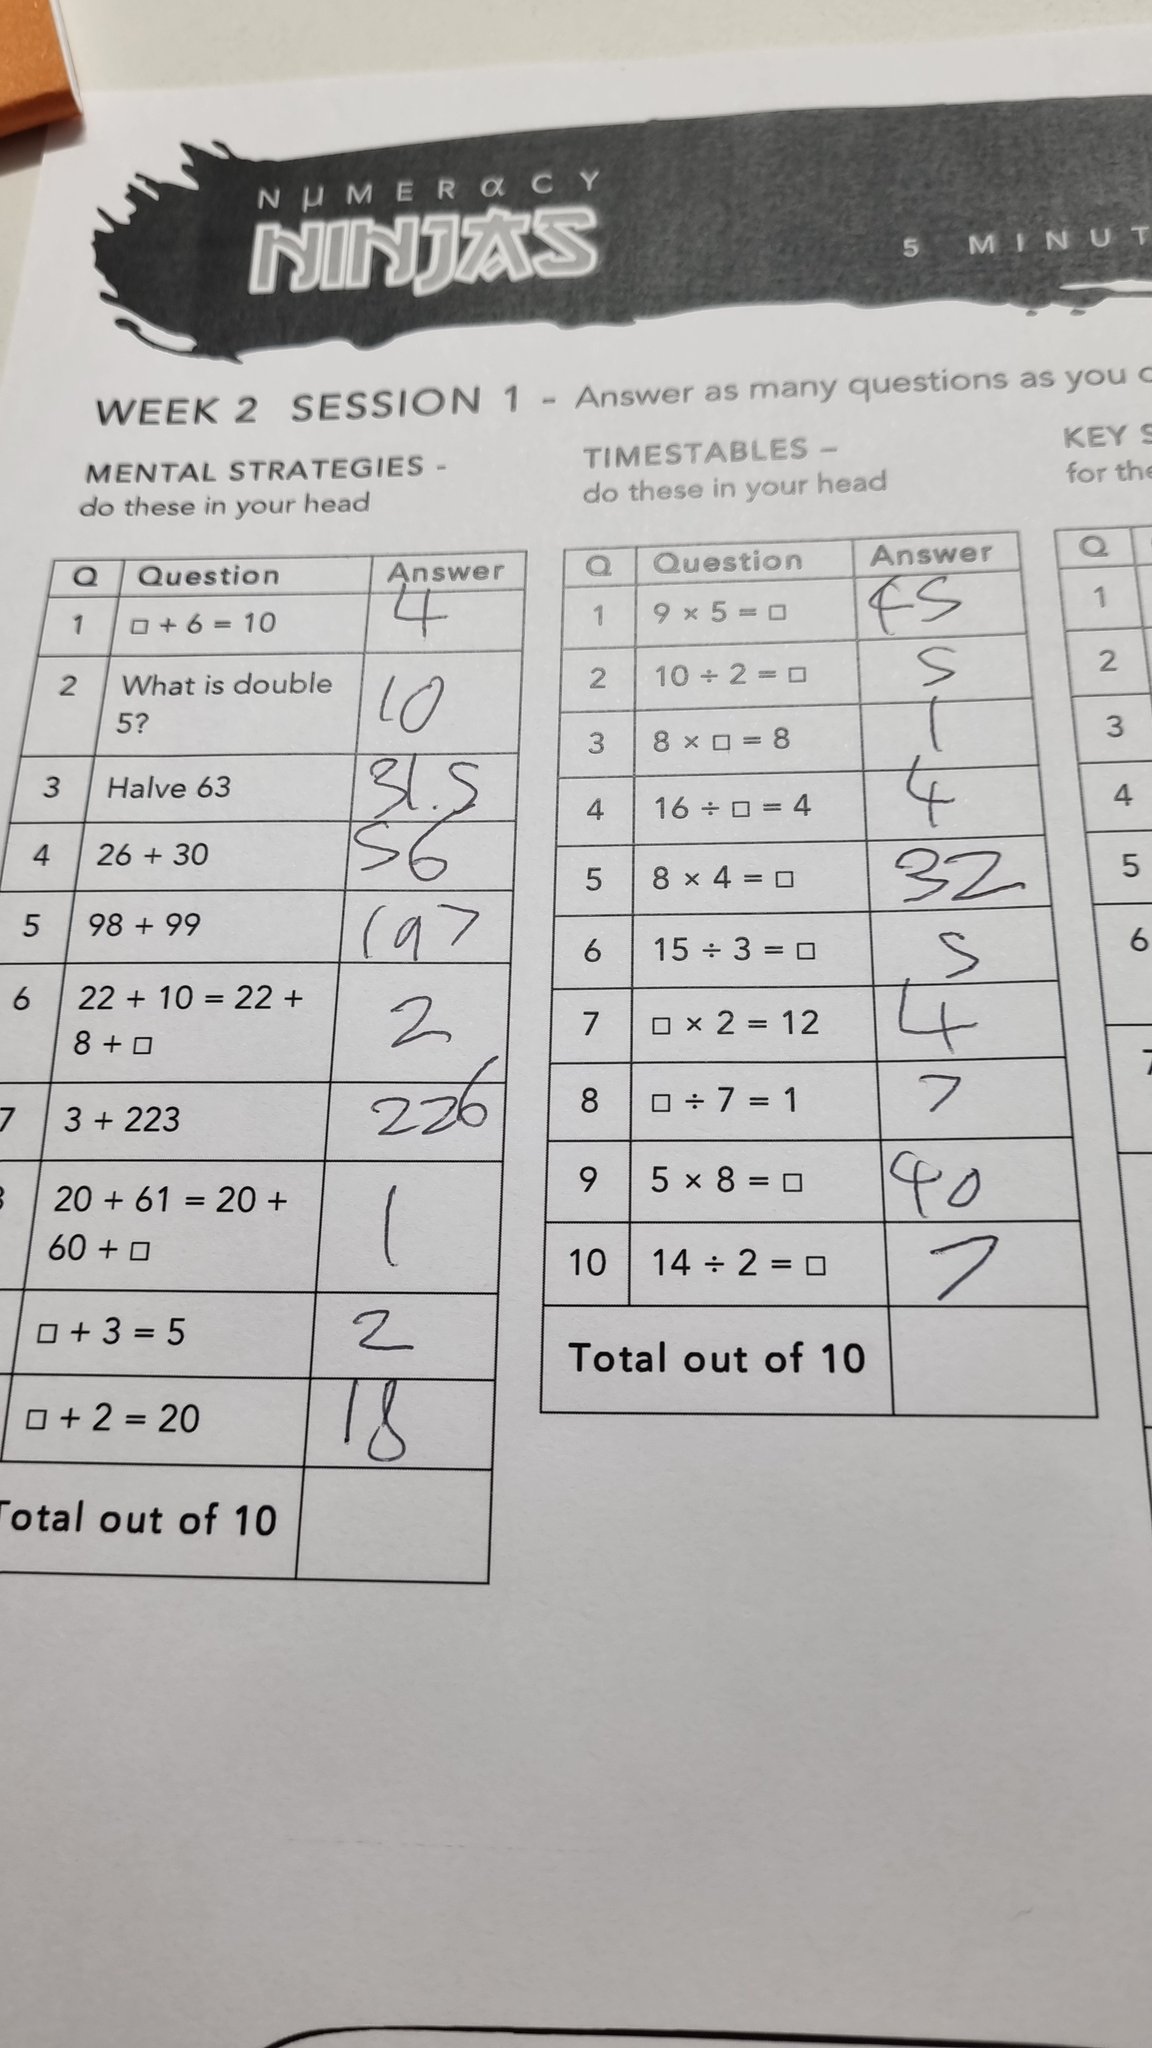 NμMERαCY
NINJAS
5 MINUT
WEEK 2 SESSION 1 - Answer as many questions as you c
MENTAL STRATEGIES -
do these in your head
Q Question Answer
1 □ + 6 = 10 4
2 What is double
5? 10
3 Halve 63 31.5
4 26 + 30 56
5 98 + 99 197
6 22 + 10 = 22 +
8 + □ 2
7 3 + 223 226
20 + 61 = 20 +
60 + □ 1
□ + 3 = 5 2
□ + 2 = 20 18
Total out of 10
TIMESTABLES –
do these in your head
Q Question Answer
1 9 × 5 = □ 45
2 10 ÷ 2 = □ 5
3 8 × □ = 8 1
4 16 ÷ □ = 4 4
5 8 × 4 = □ 32
6 15 ÷ 3 = □ 5
7 □ × 2 = 12 4
8 □ ÷ 7 = 1 7
9 5 × 8 = □ 40
10 14 ÷ 2 = □ 7
Total out of 10
KEY S
for the
Q
1
2
3
4
5
6
7